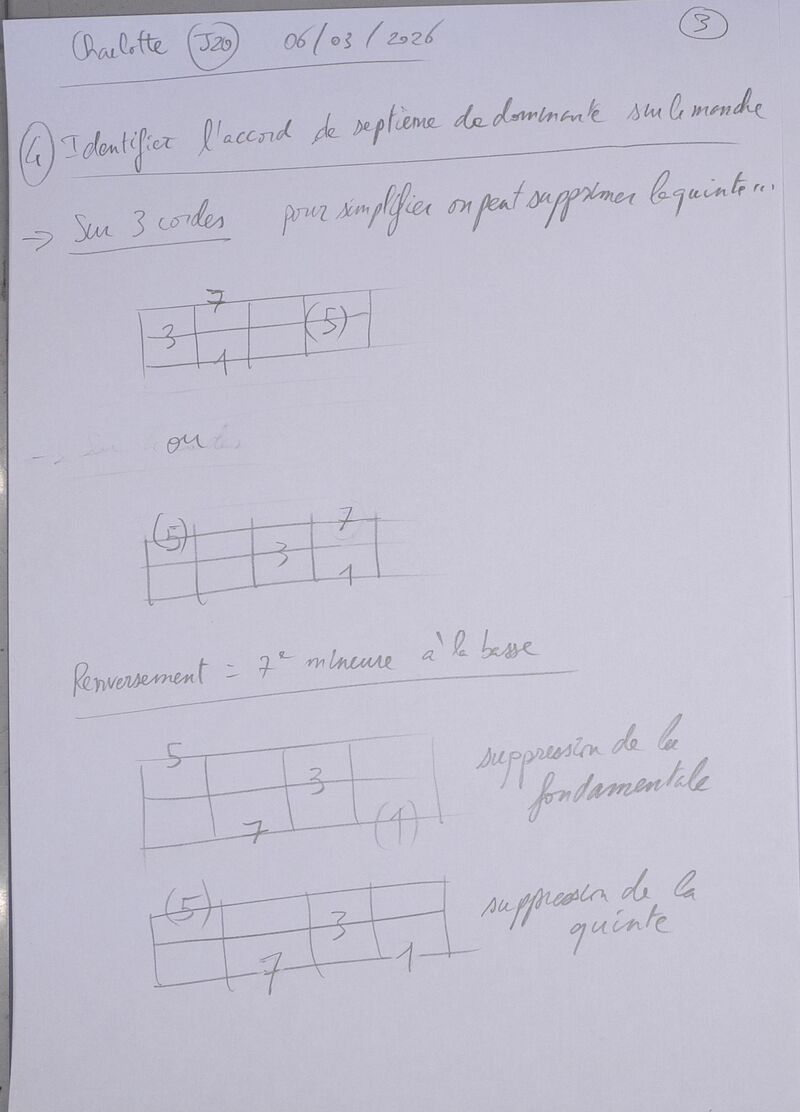 Charlotte J20 06/03/2026 3
4 Identifier l'accord de septième de dominante sur le manche
→ Sur 3 cordes pour simplifier on peut supprimer la quinte...
7
3 (5)
1
ou
(5) 7
3
1
Renversement = 7e mineure à la basse
5
3
7 (1)
suppression de la
fondamentale
(5)
3
7 1
suppression de la
quinte